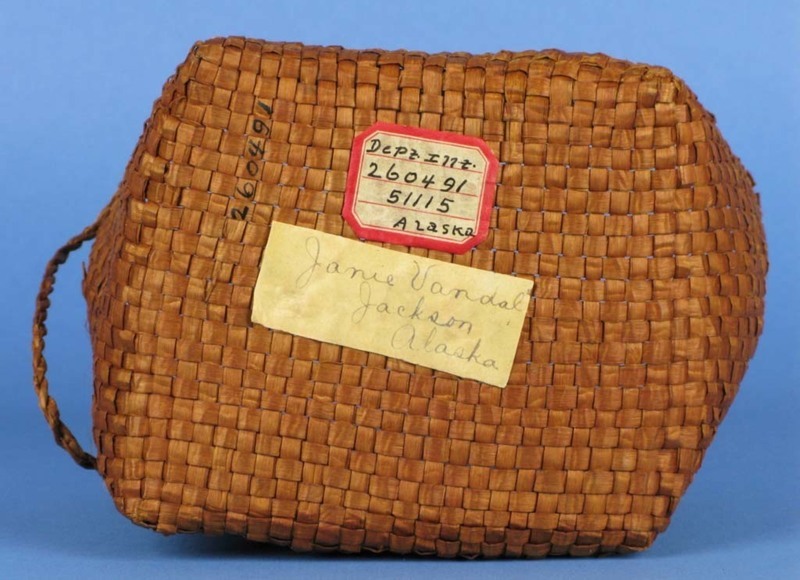 260491
Dept Int.
260491
51115
Alaska
Janie Vandal
Jackson
Alaska